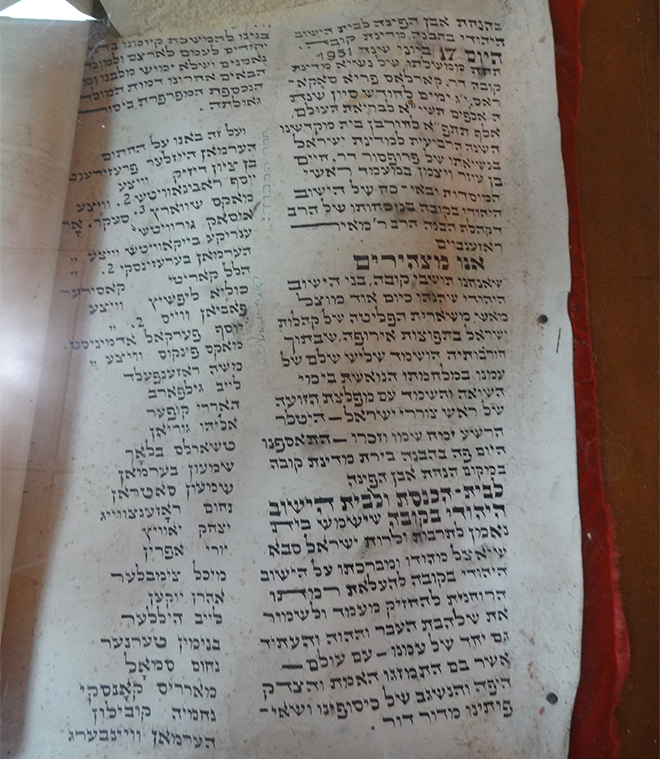 בהנחת אבן הפינה לבית הישוב
היהודי בהבנה, מדינת קובה.
היום 17 ביוני שנה 1951
תחת ממשלתו של נשיא מדינת
קובה דר. קארלאס פריא סאקא-
ראס, י״ג ימים לחודש סיון שנת
ה אלפים תשי״א לבריאת העולם,
אלף תתפ״א לחורבן בית מוקדשנו
השנה הרביעית למדינת ישראל
בנשיאתו של פרופסור דר. חיים
בן עיזר וויצמן במעמד ראשי
המוסדות ובאי-כח של הישוב
היהודי בקובה בנוכחותו של הרב
דקהלה הבנה הרב ר׳ מאיר
ראזענבוים
אנו מצהירים
שאנחנו תושבי קובה, בני הישוב
היהודי שיהננו כיום אוד מוצל
מאש משארית הפליטה של קהלות
ישראל בתפוצות אירופה, שבתוך
חורבותיה הושמד שליש שלם של
עמנו במלחמתו הנואשת בימי
השיאה והשמד עם מופלצת הזועה
של ראש צוררי ישראל – היטלר
הרשע ימח שימו וזכרו – התאספנו
היום פה בהבנה בירת מדינת קובה
במקום הנחה אבן הפינה
לבית-הכנסת ולבית הישוב
היהודי בקובה שישמש כיתד
נאמן לתרבות ולרוח ישראל סבא
שיאצל מהודו ומברכתו על הישוב
היהודי בקובה להעלאת רמתו
הרוחנית להחזיק מעמד ולשימור
את שלהבת העבר וההוה והעתיד
גם יחד של עמנו – עם עולם –
אשר בם התמזגו האמת והצדק
היפה והנשיגב של כיסופינו ושאי-
פותינו מדור דור.
בניגו להמשיכת קיומנו
יהודים לעמם לארצם
נאמנים ושלא ימישו מלבנו
הבאים אחרינו דמות המולדת
הנכספת המפרפרת ביסורי
גאולתה.
ועל זה באנו על החתום
הערמאן היוזלער פרעזידענט
בן ציון דיזיק וויצע
יוסף ראבינאוויטש 2. וויצע
מאקס שווארץ 3. סעקר.
אוסאק גורוויטש
ענריקע בייקאוויטש וויצע
הערמאן בערעזינסקי 2.
הלל קאריטי קאסירער
כוליא ליפשיץ וויצע
פאביאן ווייס 2. "
יוסף פערקאל אדמיניסט.
מאקס פינקוס וויצע "
משה ראזענפעלד
לייב גילפארב
הארי קופער
אליהו גוריאן
טשארלס בלאך
שמעון בערמאן
שמעון סאטראן
נחום ראזענצווייג
יצחק יאוויץ
יורי אפרין
מיכל צימבלער
אהרן יוקען
לייב הילער
בנימין טערנער
נחום סמאל
מאריס קאנסקי
נחמיה קובילון
הערמאן וויינבערג